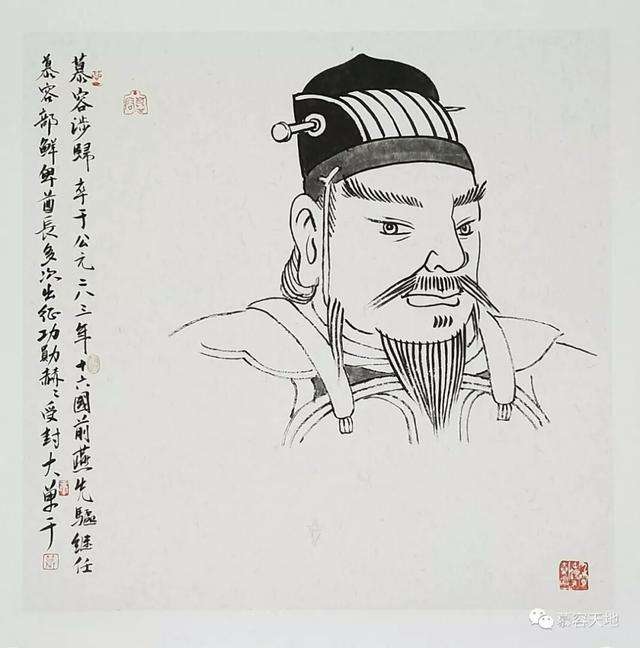 慕容涉歸 卒于公元二八三年 十六國前燕先驅継任
慕容部鮮卑酋長多次出征功勛赫〻受封大單于
慕容天地